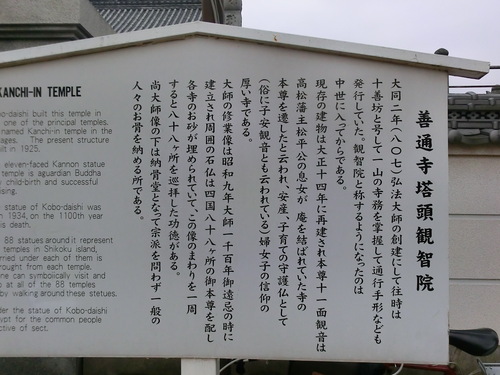 善通寺塔頭観智院
大同二年(八〇七)弘法大師の創建にして往時は
十善坊と号して一山の寺務を掌握して通行手形なども
発行していた。観智院と称するようになったのは
中世に入ってからである。
現存の建物は大正十四年に再建され本尊十一面観音は
高松藩主松平公の息女が庵を結ばれていた寺の
本尊を遷したと云われ、安産、子育ての守護仏として
(俗に子安観音とも云われている)婦女子の信仰の
厚い寺である。
大師の修業像は昭和九年大師一千百年御遠忌の時に
建立され周囲の石仏は四国八十八ヶ所の御本尊を配し
各寺のお砂が埋められていて、この像のまわりを一周
すると八十八ヶ所を巡拝した功徳がある。
尚大師像の下は納骨堂となって宗派を問わず一般の
人々のお骨を納める所である。
KANCHI-IN TEMPLE
bo-daishi built this temple in
one of the principal temples.
named Kanchi-in temple in the
ages. The present structure
uilt in 1925.
eleven-faced Kannon statue
temple is aguardian Buddha
child-birth and successful
ising.
statue of Kobo-daishi was
n 1934, on the 1100th year
is death.
88 statues around it represent
temples in Shikoku island,
rried under each of them is
rought from each temple.
one can symbolically visit and
p at all of the 88 temples
by walking around these statues.
der the statue of Kobo-daishi
ypt for the common people
ctive of sect.